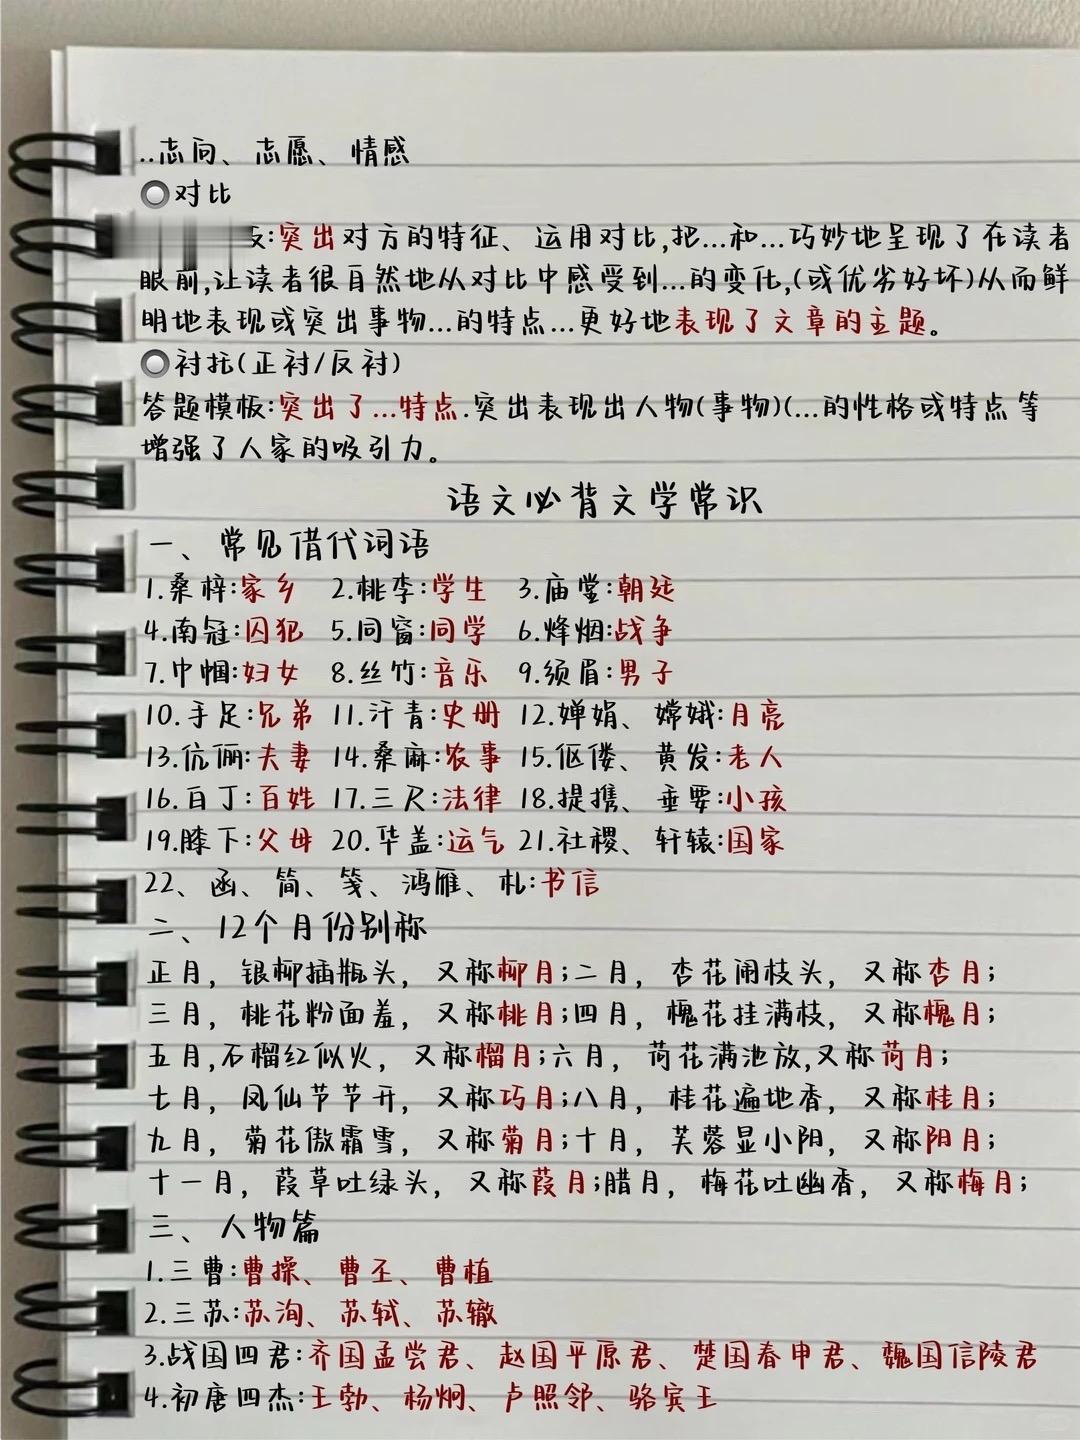 ..志向、志愿、情感
对比
:突出对方的特征、运用对比,把...和...巧妙地呈现了在读者
眼前,让读者很自然地从对比中感受到...的变化,(或优劣好坏)从而鲜
明地表现或突出事物...的特点...更好地表现了文章的主题。
衬托(正衬/反衬)
答题模板:突出了...特点.突出表现出人物(事物)(...的性格或特点等
增强了人家的吸引力。
语文必背文学常识
一、常见借代词语
1.桑梓:家乡 2.桃李:学生 3.庙堂:朝廷
4.南冠:囚犯 5.同窗:同学 6.烽烟:战争
7.巾帼:妇女 8.丝竹:音乐 9.须眉:男子
10.手足:兄弟 11.汗青:史册 12.婵娟、嫦娥:月亮
13.伉俪:夫妻 14.桑麻:农事 15.伛偻、黄发:老人
16.白丁:百姓 17.三尺:法律 18.提携、垂要:小孩
19.膝下:父母 20.华盖:运气 21.社稷、轩辕:国家
22、函、简、笺、鸿雁、札:书信
二、12个月份别称
正月，银柳插瓶头，又称柳月;二月，杏花闹枝头，又称杏月;
三月，桃花粉面羞，又称桃月;四月，槐花挂满枝，又称槐月;
五月,石榴红似火，又称榴月;六月，荷花满池放,又称荷月;
七月，凤仙节节开，又称巧月;八月，桂花遍地香，又称桂月;
九月，菊花傲霜雪，又称菊月;十月，芙蓉显小阳，又称阳月;
十一月，葭草吐绿头，又称葭月;腊月，梅花吐幽香，又称梅月;
三、人物篇
1.三曹:曹操、曹丕、曹植
2.三苏:苏洵、苏轼、苏辙
3.战国四君:齐国孟尝君、赵国平原君、楚国春申君、魏国信陵君
4.初唐四杰:王勃、杨炯、卢照邻、骆宾王